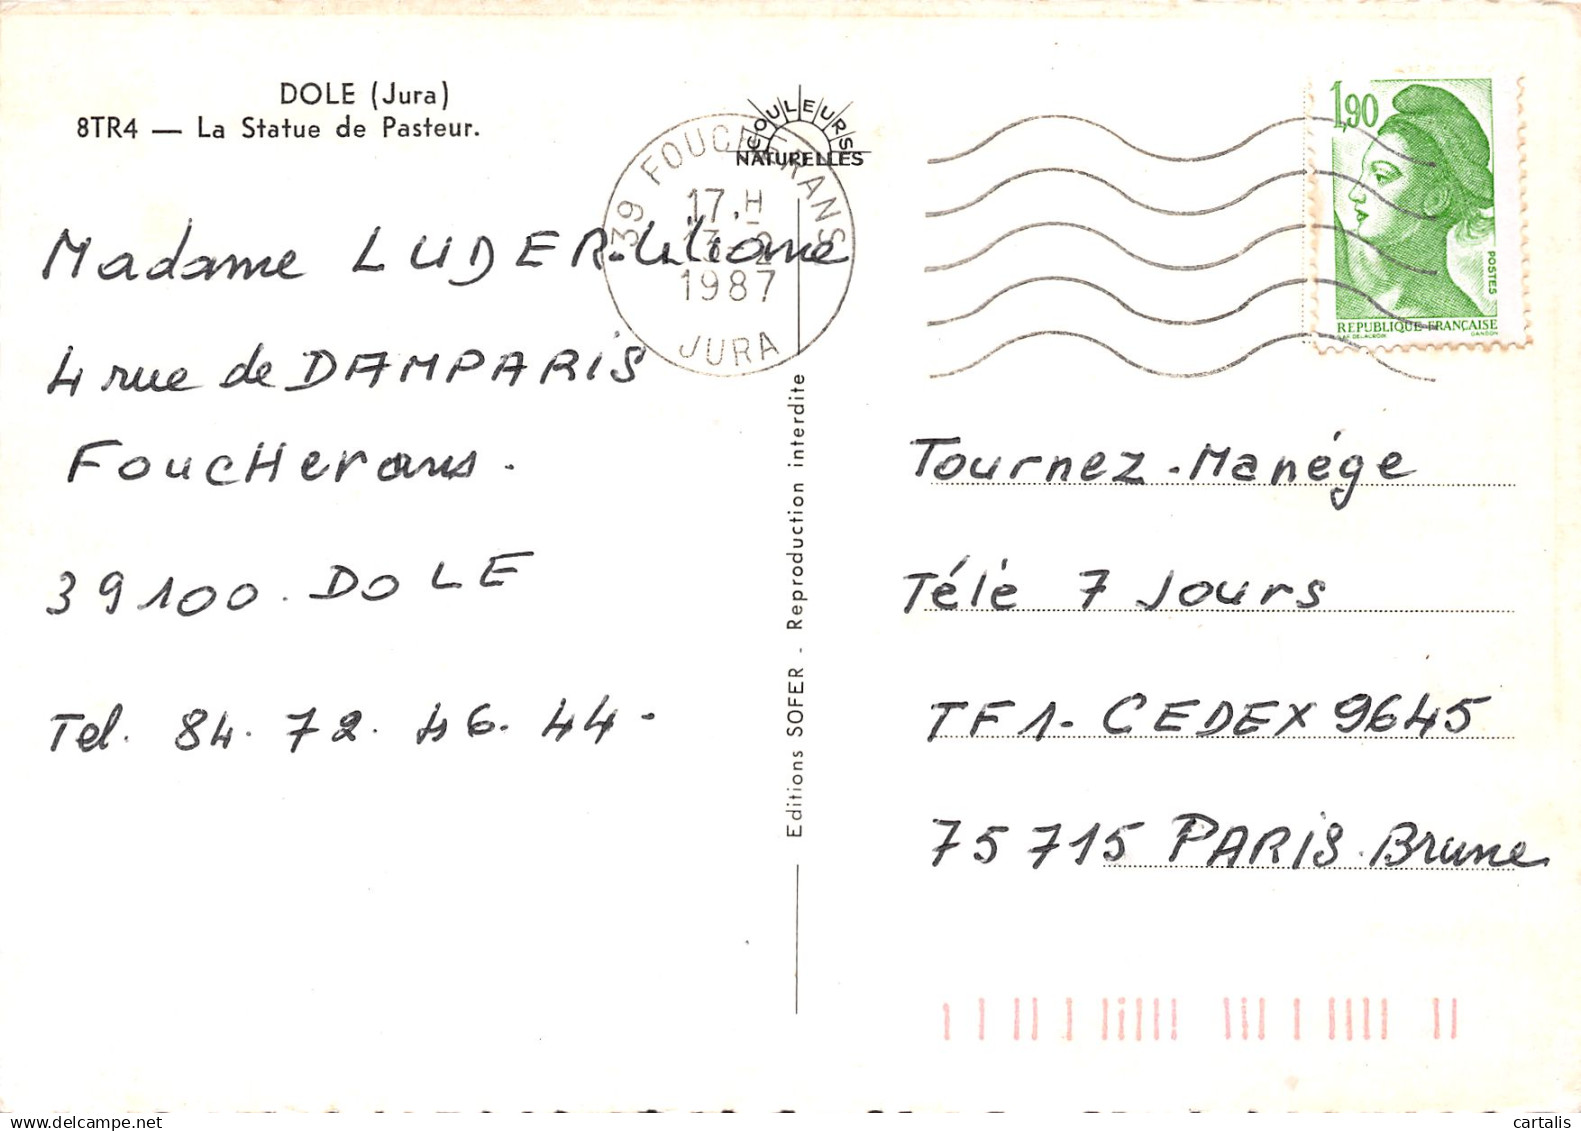 DOLE (Jura)
8TR4 — La Statue de Pasteur.
COULEURS
NATURELLES
39 FOUCHERANS
17 H
13-2
1987
JURA
1,90
POSTES
REPUBLIQUE FRANÇAISE
GANDON
Madame LUDER Liliane
4 rue de DAMPARiS
FoucHerans.
39100. DOLE
Tel. 84. 72. 46. 44-
Editions SOFER - Reproduction interdite
Tournez-Manége
Télé 7 Jours
TF1- CEDEX 9645
75715 PARiS.Brune
cartalis